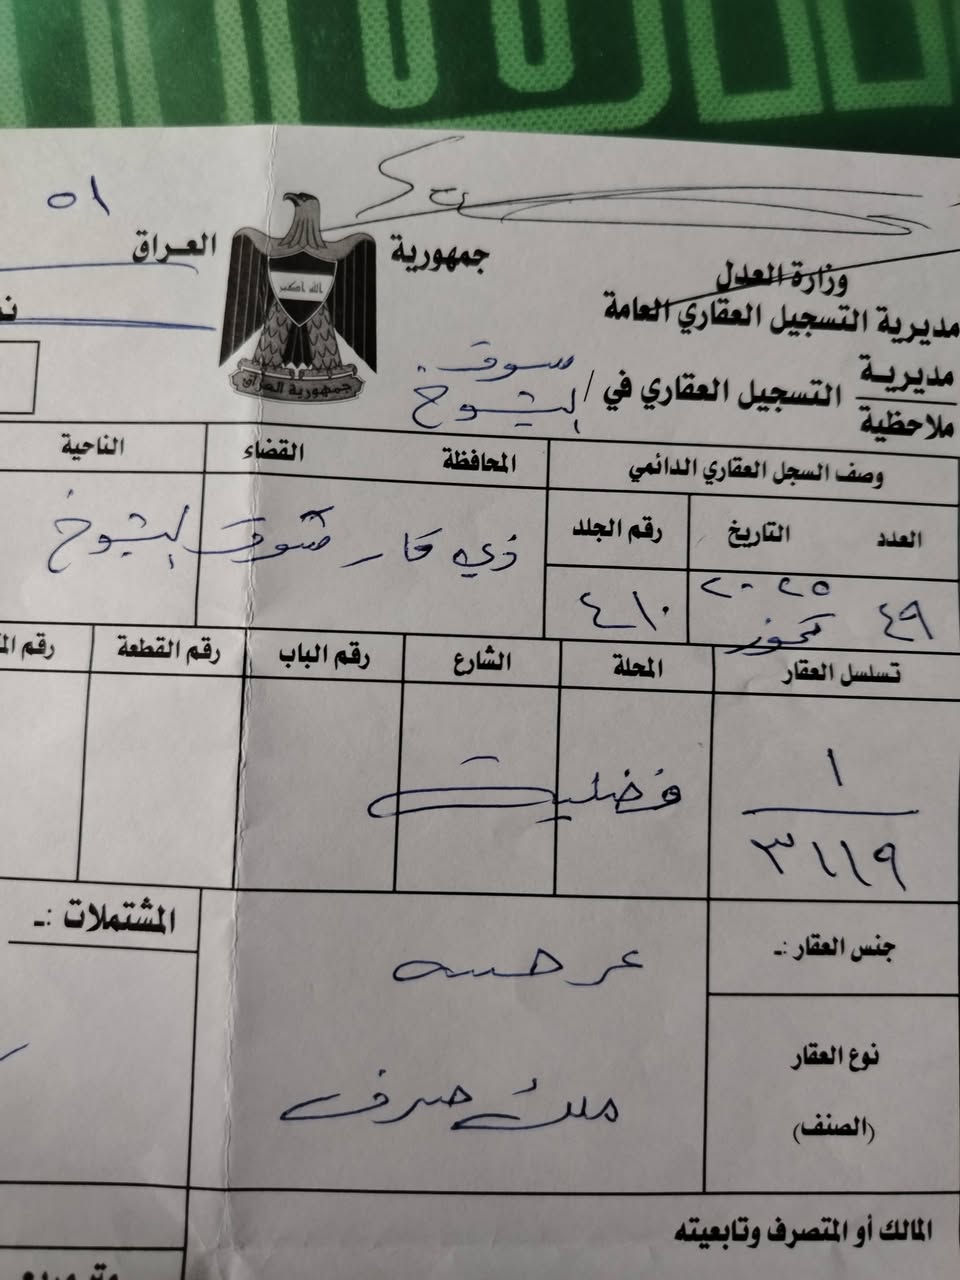 ٥١
جمهورية العراق
الله اكبر
جمهورية العراق
وزارة العدل
مديرية التسجيل العقاري العامة
مديرية
ملاحظية
التسجيل العقاري في / سوق
الشيوخ
وصف السجل العقاري الدائمي المحافظة القضاء الناحية
العدد التاريخ رقم الجلد
ذي قار سوق الشيوخ
٤٩ ٢٠٢٥ تموز ٤١٠
تسلسل العقار المحلة الشارع رقم الباب رقم القطعة رقم
١
٣١١٩
فضلية
جنس العقار :ـ عرصه المشتملات :ـ
نوع العقار
(الصنف)
ملك صرف
المالك أو المتصرف وتابعيته